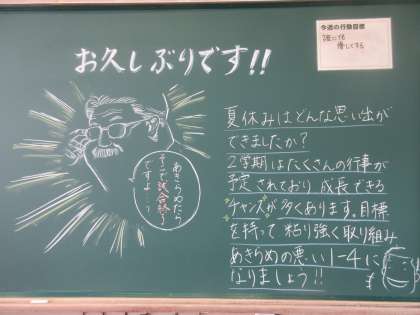 お久しぶりです!!
今週の行動目標
誰にでも
優しくする
あきらめたら
そこで試合終了
ですよ…?
夏休みはどんな思い出が
できましたか?
2学期はたくさんの行事が
予定されており成長できる
チャンスが多くあります。目標
を持って粘り強く取り組み
あきらめの悪い1-4に
なりましょう!!